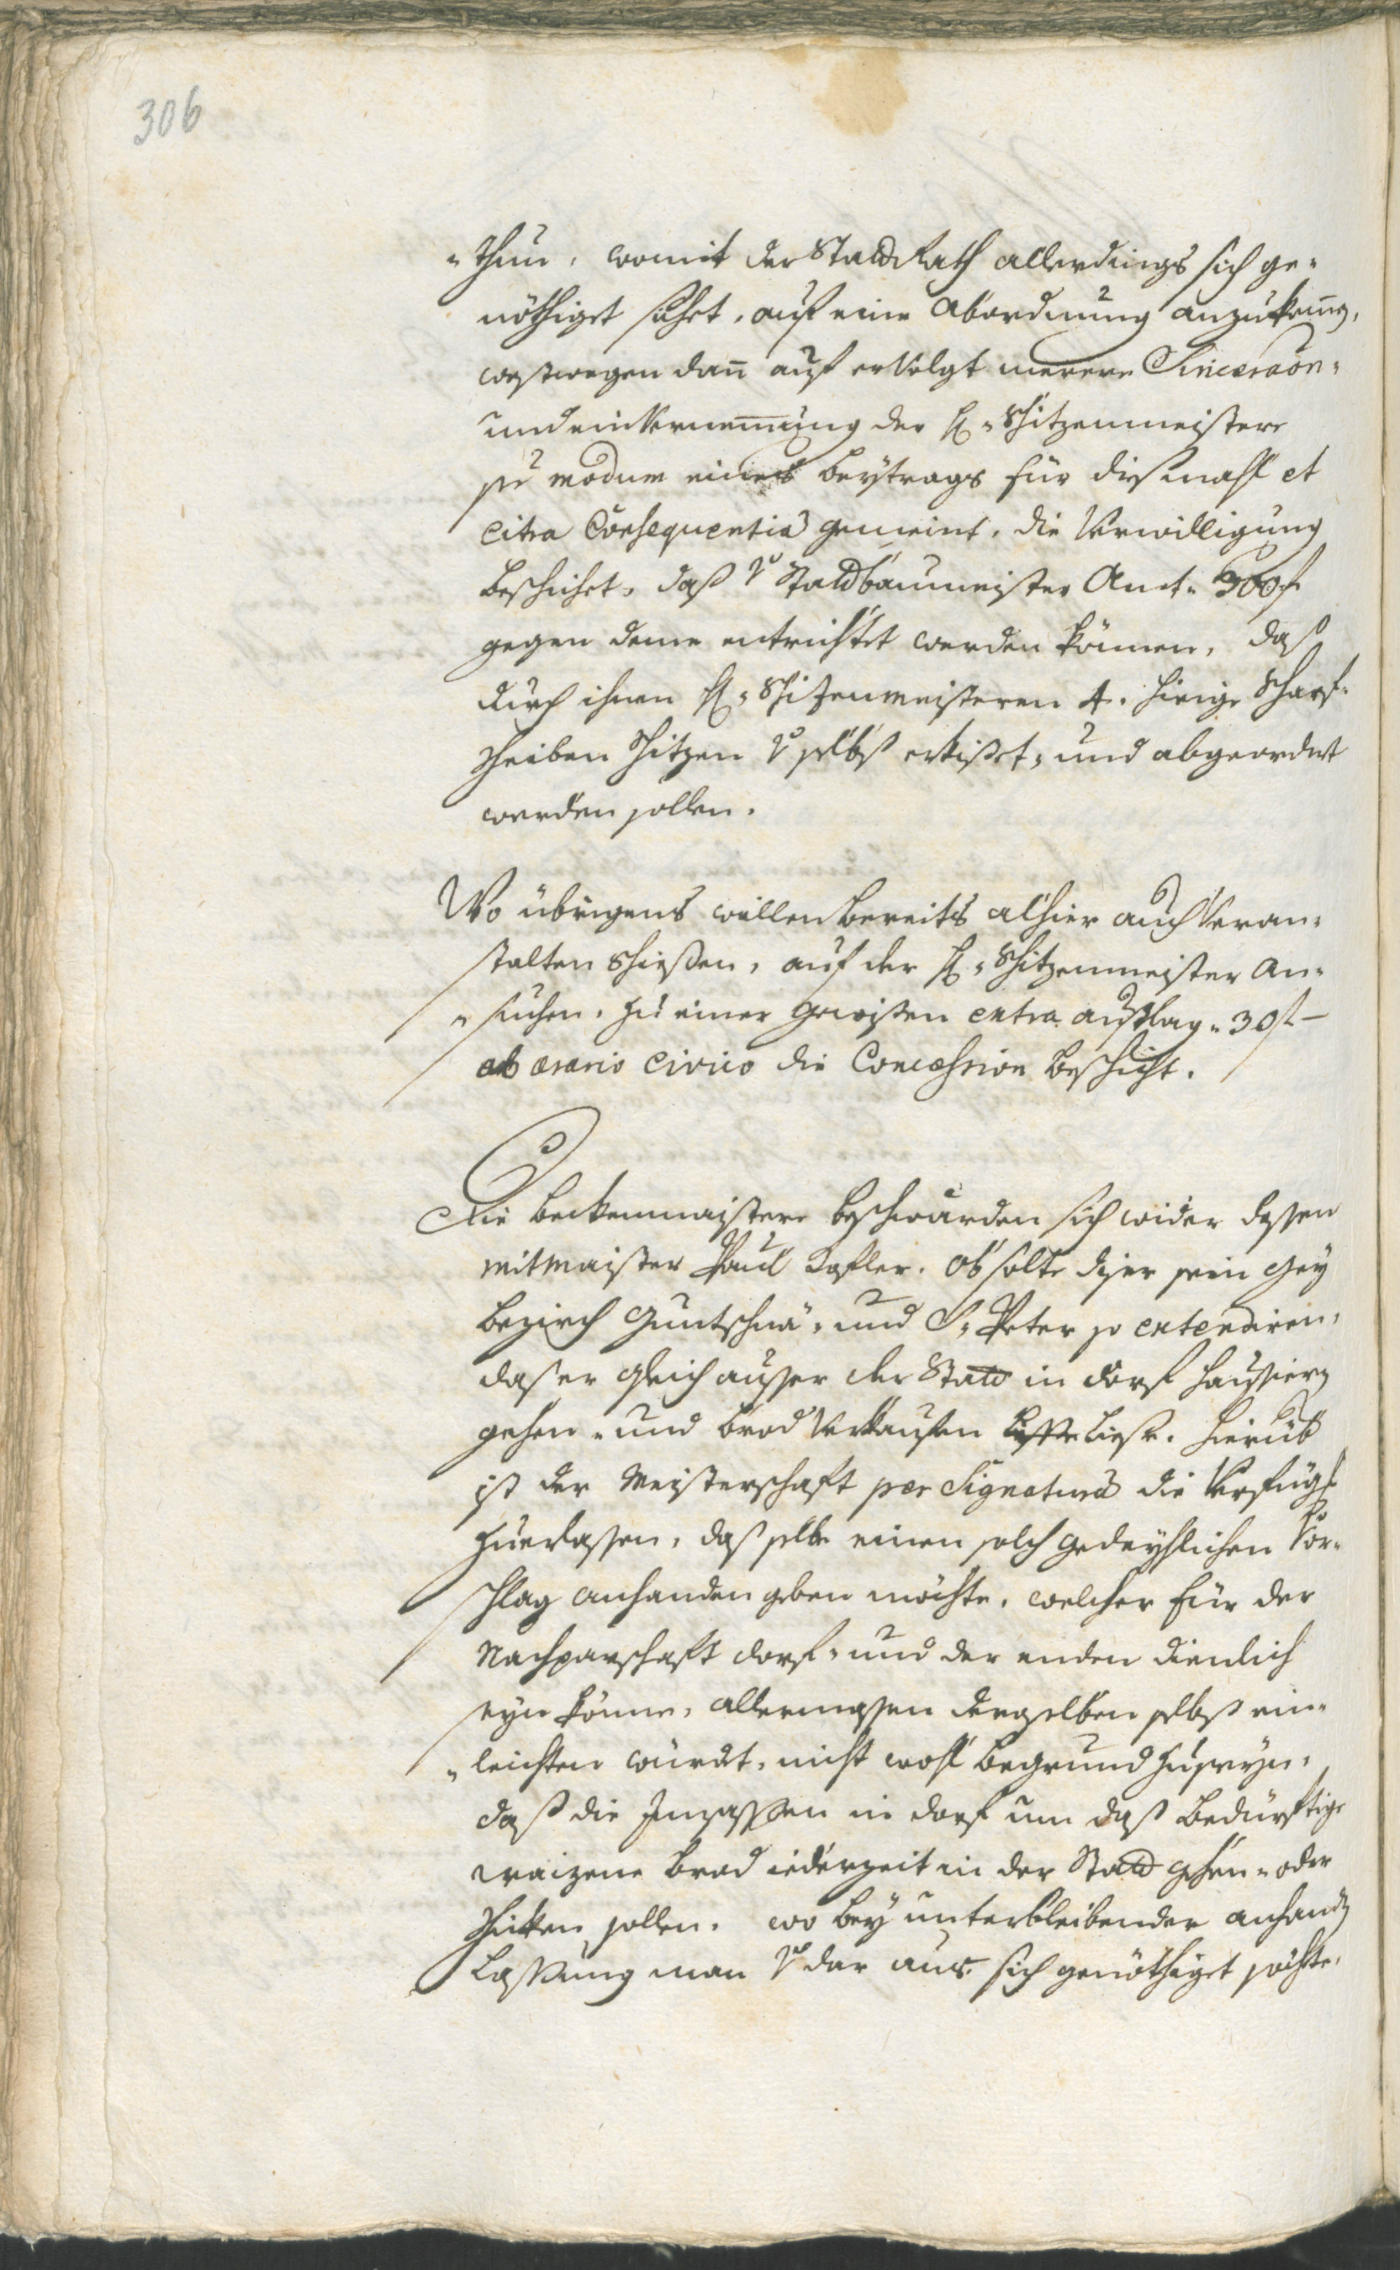 306
-thun, womit der StadtRath allerdings sich ge-
nöthiget sihet, auf eine Abordnung anzutragen,
weßwegen dan auf erfolgt merere Sinceraon-
und einvernemung der H: Schitzenmeistere
per modum eines beÿtrags für dißmahl et
citra Consequentiā gemeint, die Verwilligung
beschihet, daß Stattbaumeister Amt 300 f
gegen deme entrichtet werden können, daß
durch ihnen H: Schizenmeisteren 4. hiesige Scharf-
scheiben Schitzen selbst erkißet, und abgeordnet
werden sollen.
Wo übrigens willen bereits alhier auch veran-
stalten Schiessen, auf der H: Schitzenmeister An-
-suchen, zu einer gewissen extra auslag 30 f
ab ærario civico die Concession beschicht.
Die beckenmaistere beschwärden sich wider dessen
mitmaister Paul Kofler. Ob solte diser sein Gey
bezirch Guntschnä- und S: Peter so extendiren,
daß er gleich ausser der Statt in dorf hausiern
gehen- und brod verkaufen liesse. Hierüb
ist der Meisterschaft per Signaturā die Verfüg
zuerlassen, daß selbe einen solch gedeyhlichen Vor-
schlag anhanden geben möchte, welcher für der
Nachparschaft dorf- und der enden dienlich
seyn könne, allermassen derselben selbst ein-
-leichten würdt, nicht wohl begrund zuseyn,
daß die Innsassen in dorf um daß bedürftige
waizene brod iederzeit in der Statt gehen- oder
schicken sollen. wo bey unterbleibender anhand
Lassung man dar aus sich genöthiget sächte,